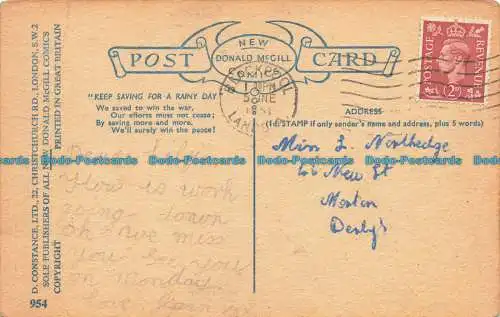 POST CARD
NEW
DONALD McGILL
COMICS
BLACKPOOL
POSTAGE REVENUE
2D
"KEEP SAVING FOR A RAINY DAY"
We saved to win the war,
Our efforts must not cease;
By saving more and more,
We'll surely win the peace!
ADDRESS
(1d. STAMP if only sender's name and address, plus 5 words)
How is work
going down
Oh I've miss
you See you
on Monday
love
Miss L Northedge
66 New St
Morton
Derby's
D. CONSTANCE, LTD., 22, CHRISTCHURCH RD., LONDON, S.W.2
SOLE PUBLISHERS OF ALL NEW DONALD McGILL COMICS
COPYRIGHT PRINTED IN GREAT BRITAIN
954
Bildo-Postcards Bildo-Postcards Bildo-Postcards Bildo-Postcards Bildo-Postcards